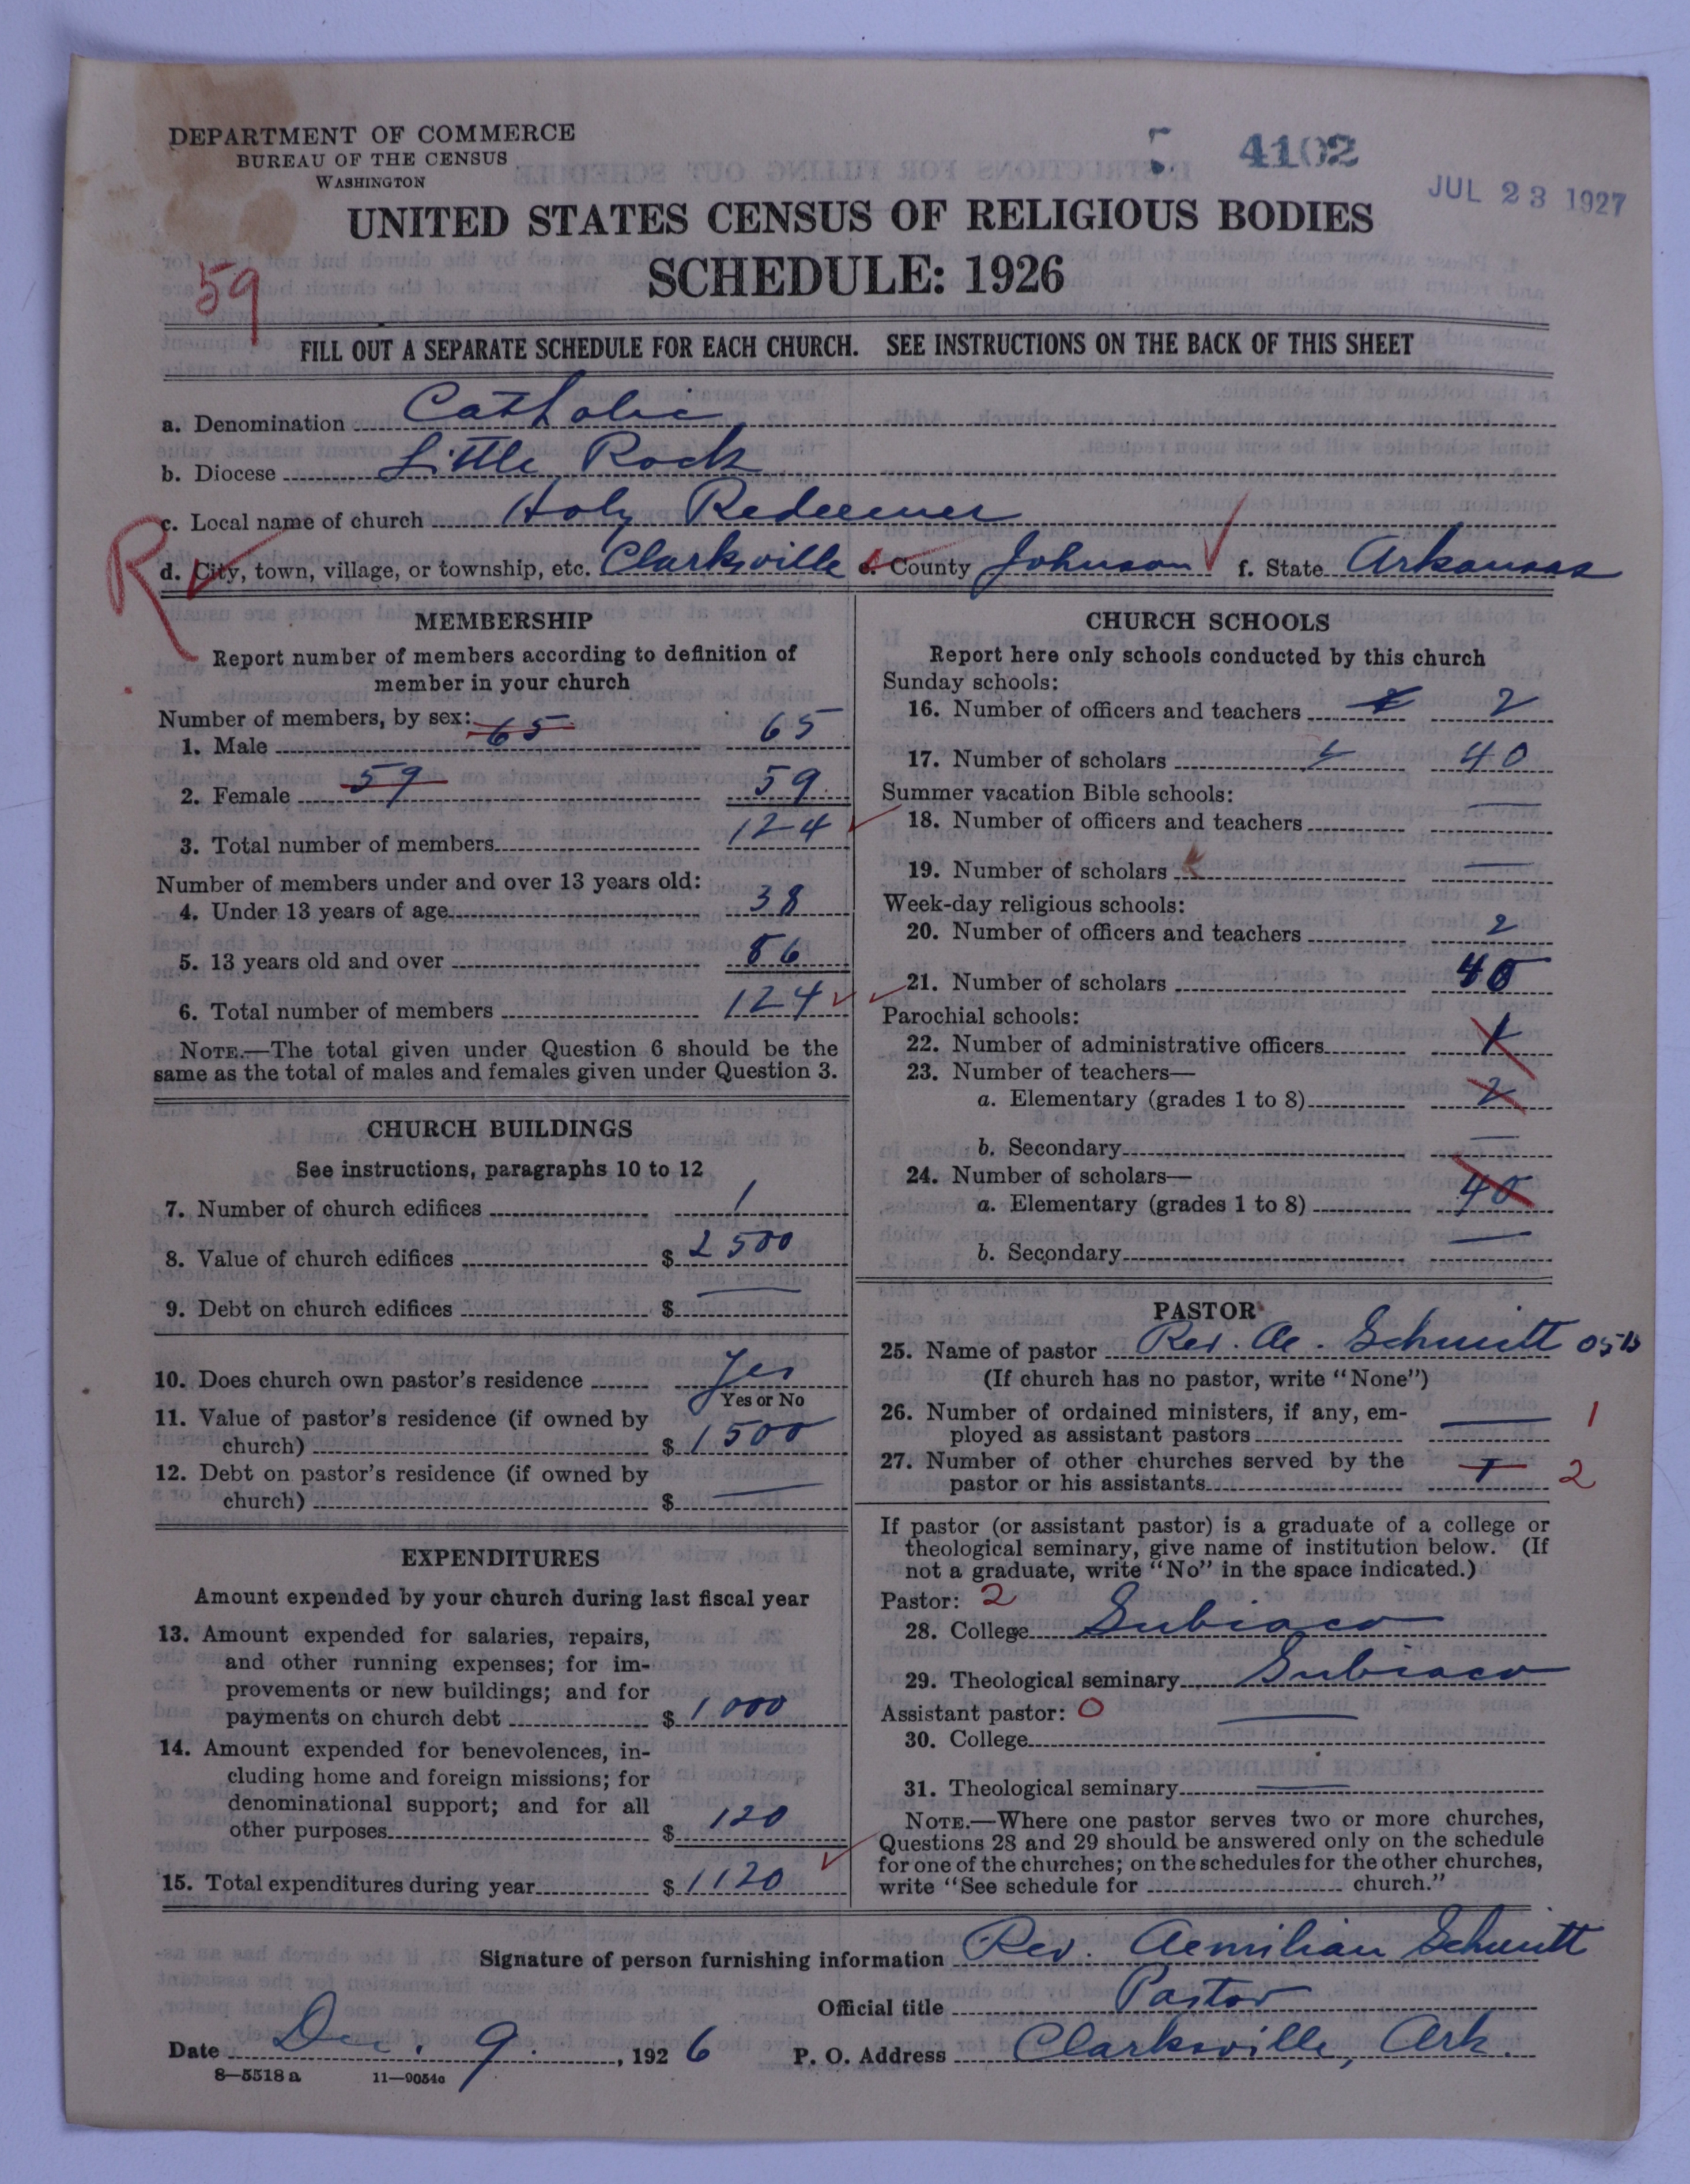 DEPARTMENT OF COMMERCE
BUREAU OF THE CENSUS
WASHINGTON
4102
JUL 23 1927
UNITED STATES CENSUS OF RELIGIOUS BODIES
SCHEDULE: 1926
59
FILL OUT A SEPARATE SCHEDULE FOR EACH CHURCH. SEE INSTRUCTIONS ON THE BACK OF THIS SHEET
a. Denomination Catholic
b. Diocese Little Rock
c. Local name of church Holy Redeemer
R
d. City, town, village, or township, etc. Clarksville e. County Johnson f. State Arkansas
MEMBERSHIP
Report number of members according to definition of
member in your church
Number of members, by sex:
1. Male 65 65
2. Female 59 59
3. Total number of members 124
Number of members under and over 13 years old:
4. Under 13 years of age 38
5. 13 years old and over 86
6. Total number of members 124
NOTE.—The total given under Question 6 should be the
same as the total of males and females given under Question 3.
CHURCH BUILDINGS
See instructions, paragraphs 10 to 12
7. Number of church edifices 1
8. Value of church edifices $ 2500
9. Debt on church edifices $ —
10. Does church own pastor's residence Yes
Yes or No
11. Value of pastor's residence (if owned by
church) $ 1500
12. Debt on pastor's residence (if owned by
church) $ —
EXPENDITURES
Amount expended by your church during last fiscal year
13. Amount expended for salaries, repairs,
and other running expenses; for im-
provements or new buildings; and for
payments on church debt $ 1000
14. Amount expended for benevolences, in-
cluding home and foreign missions; for
denominational support; and for all
other purposes $ 120
15. Total expenditures during year $ 1120
CHURCH SCHOOLS
Report here only schools conducted by this church
Sunday schools:
16. Number of officers and teachers 2
17. Number of scholars 40
Summer vacation Bible schools:
18. Number of officers and teachers —
19. Number of scholars —
Week-day religious schools:
20. Number of officers and teachers 2
21. Number of scholars 40
Parochial schools:
22. Number of administrative officers 1
23. Number of teachers—
a. Elementary (grades 1 to 8) 2
b. Secondary —
24. Number of scholars—
a. Elementary (grades 1 to 8) 40
b. Secondary —
PASTOR
25. Name of pastor Rev. Ae. Schmitt
(If church has no pastor, write "None")
26. Number of ordained ministers, if any, em-
ployed as assistant pastors — 1
27. Number of other churches served by the
pastor or his assistants 2
If pastor (or assistant pastor) is a graduate of a college or
theological seminary, give name of institution below. (If
not a graduate, write "No" in the space indicated.)
Pastor: 2
28. College Subiaco
29. Theological seminary Subiaco
Assistant pastor: 0
30. College —
31. Theological seminary —
NOTE.—Where one pastor serves two or more churches,
Questions 28 and 29 should be answered only on the schedule
for one of the churches; on the schedules for the other churches,
write "See schedule for church."
Signature of person furnishing information Rev. Aemilian Schmitt
Official title Pastor
Date Dec. 9. , 1926 P. O. Address Clarksville, Ark.
8—5518 a 11—9054c